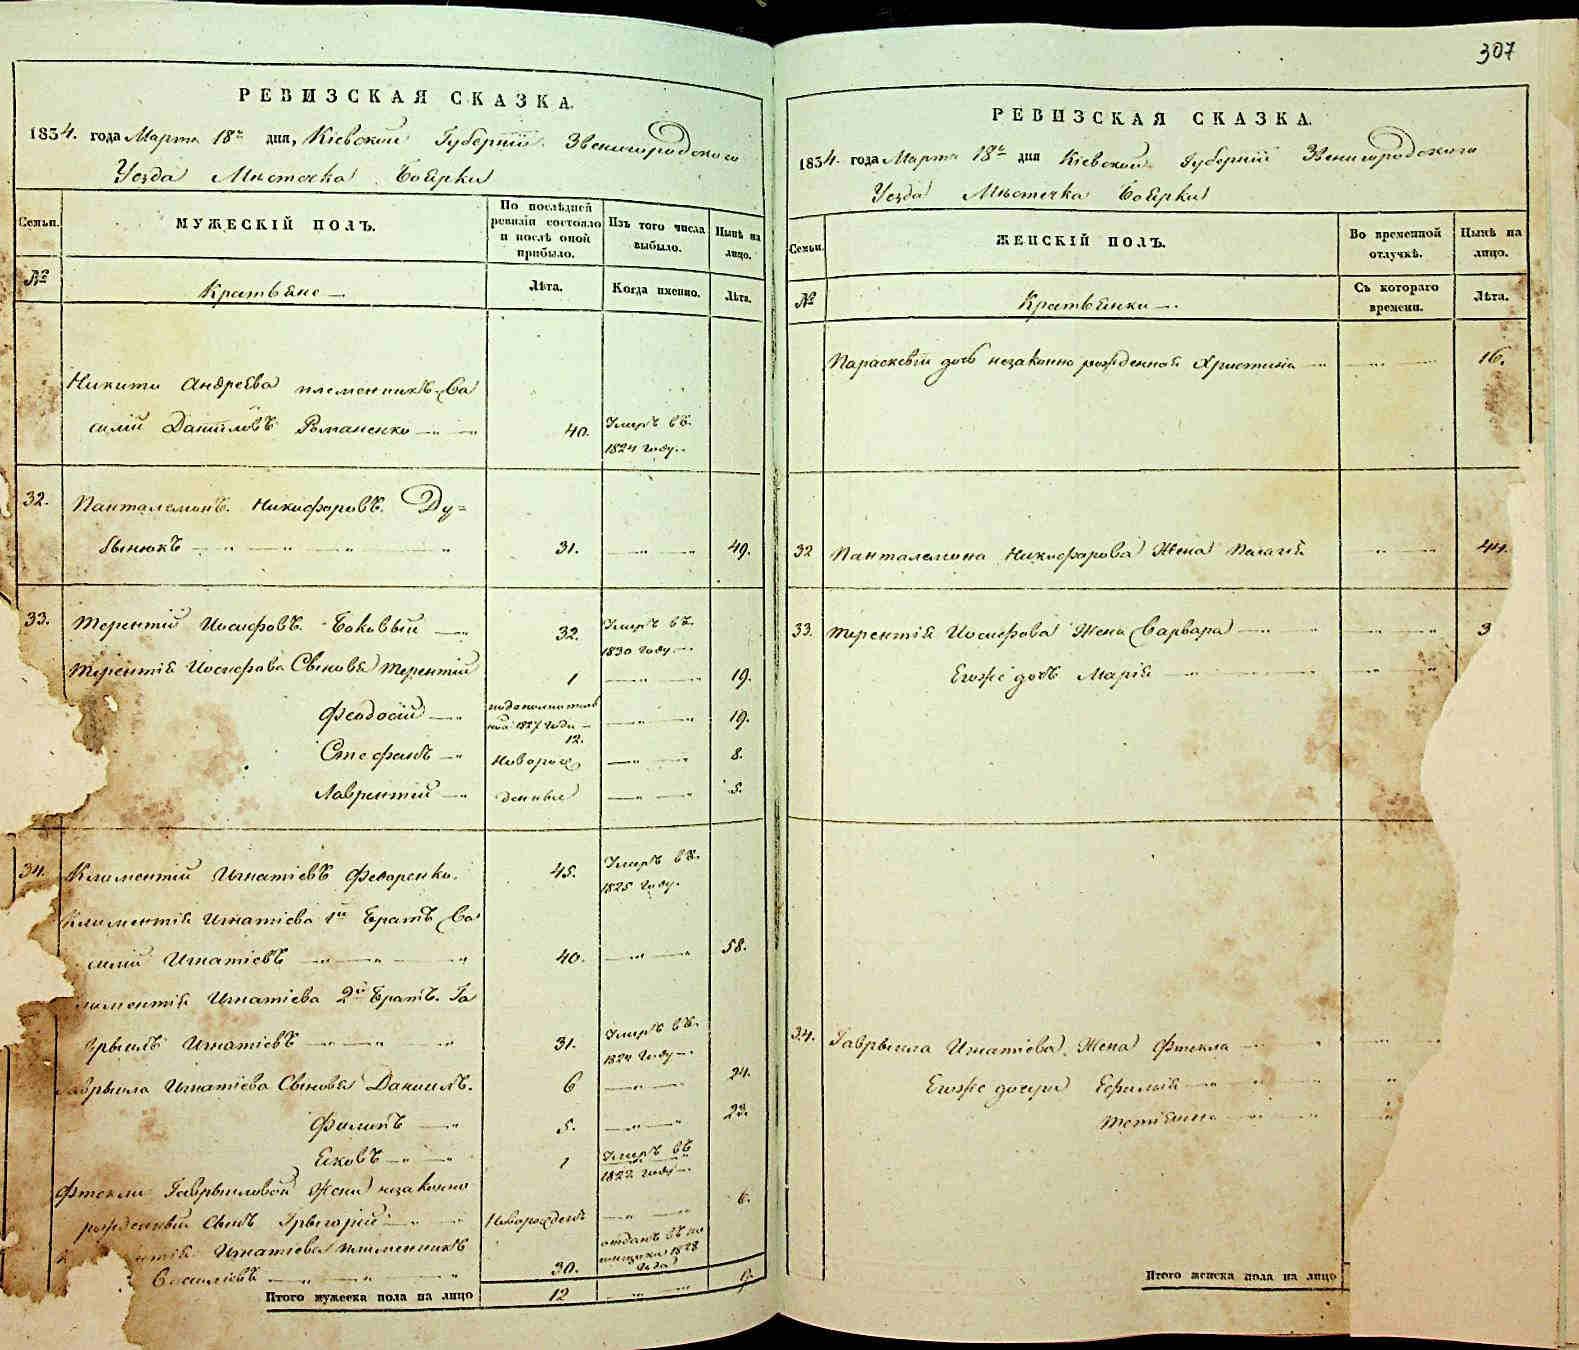 РЕВИЗСКАЯ СКАЗКА.
1834. года Марта 18го дня, Кіевской Губерніи Звенигородского
Уезда Мѣстечка Боярки
Семьи.
МУЖЕСКІЙ ПОЛЪ.
По послѣдней ревизіи состояло и послѣ оной прибыло.
Изъ того числа выбыло.
Нынѣ на лицо.
№
Крестьяне
Лѣта.
Когда имянно.
Лѣта.
Никиты Андреева племенникъ Ва
силій Даниловъ Романенко 40. Умеръ въ
1824 году
32. Панталемонъ Никифоровъ Ду=
бынюкъ 31. 49.
33. Терентій Иосифовъ Боковый 32. Умеръ въ
1830 году
Терентія Иосифова Сыновья Терентій 1 19.
Феодосій 1827 года 12. 19.
Стефанъ Новорож 8.
Лаврентій денные 5.
34. Климентій Игнатіевъ 45. Умеръ въ
1825 году.
Климентія Игнатіева 1й Братъ Ва
силій Игнатіевъ 40. 58.
лиментія Игнатіева 2й Братъ Га
врыилъ Игнатіевъ 31. Умеръ въ
1824 году
Гаврыила Игнатіева Сыновья Даниилъ 6 24.
Филипъ 5. 23.
Яковъ 1 Умеръ въ
1822 году
Фтекли Гаврыиловой Жены незаконно
рожденный Сынъ Грыгорій Новорожден 6.
Игнатіева племенникъ отданъ въ
Василіевъ 30. 1828 года
Итого мужеска пола на лицо 12 9.
307
РЕВИЗСКАЯ СКАЗКА.
1834. года Марта 18го дня Кіевской Губерніи Звенигородского
Уезда Мѣстечка Боярки
Семьи.
ЖЕНСКІЙ ПОЛЪ.
Во временной отлучкѣ.
Нынѣ на лицо.
№
Крестьянки
Съ котораго времени.
Лѣта.
Параскевіи дочь незаконно рожденная Христина 16.
32 Панталемона Никифорова Жена Пелагія 44.
33. Терентія Иосифова Жена Варвара 3
Егожъ дочь Марія
34. Гаврыила Игнатіева Жена Фтекла
Егожъ дочери Ефимія
Тетіяна
Итого женска пола на лицо